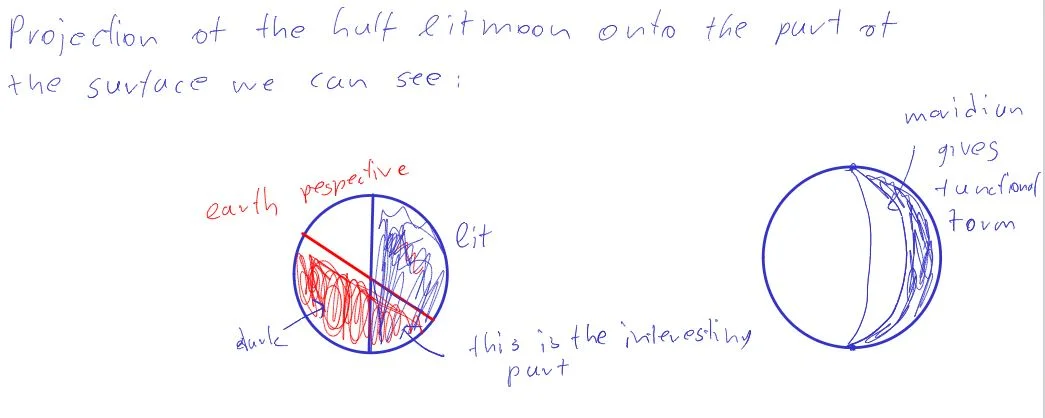 Projection of the half lit moon onto the part of
the surface we can see:
meridian
gives
functional
form
earth pespective
lit
dark
this is the interesting
part